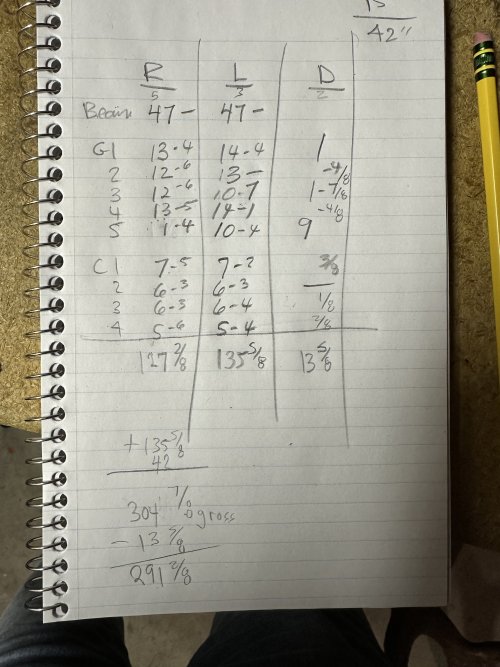 42"
R L D
5 3 2
Beam 47- 47-
G1 13-4 14-4 1
2 12-6 13- -4/8
3 12-6 10-7 1-7/8
4 13-5 14-1 -4/8
5 11-4 10-4 9
C1 7-5 7-2 3/8
2 6-3 6-3 —
3 6-3 6-4 1/8
4 5-6 5-4 2/8
127 2/8 135 5/8 13 5/8
+135 5/8
42
304 7/8 gross
- 13 5/8
291 2/8